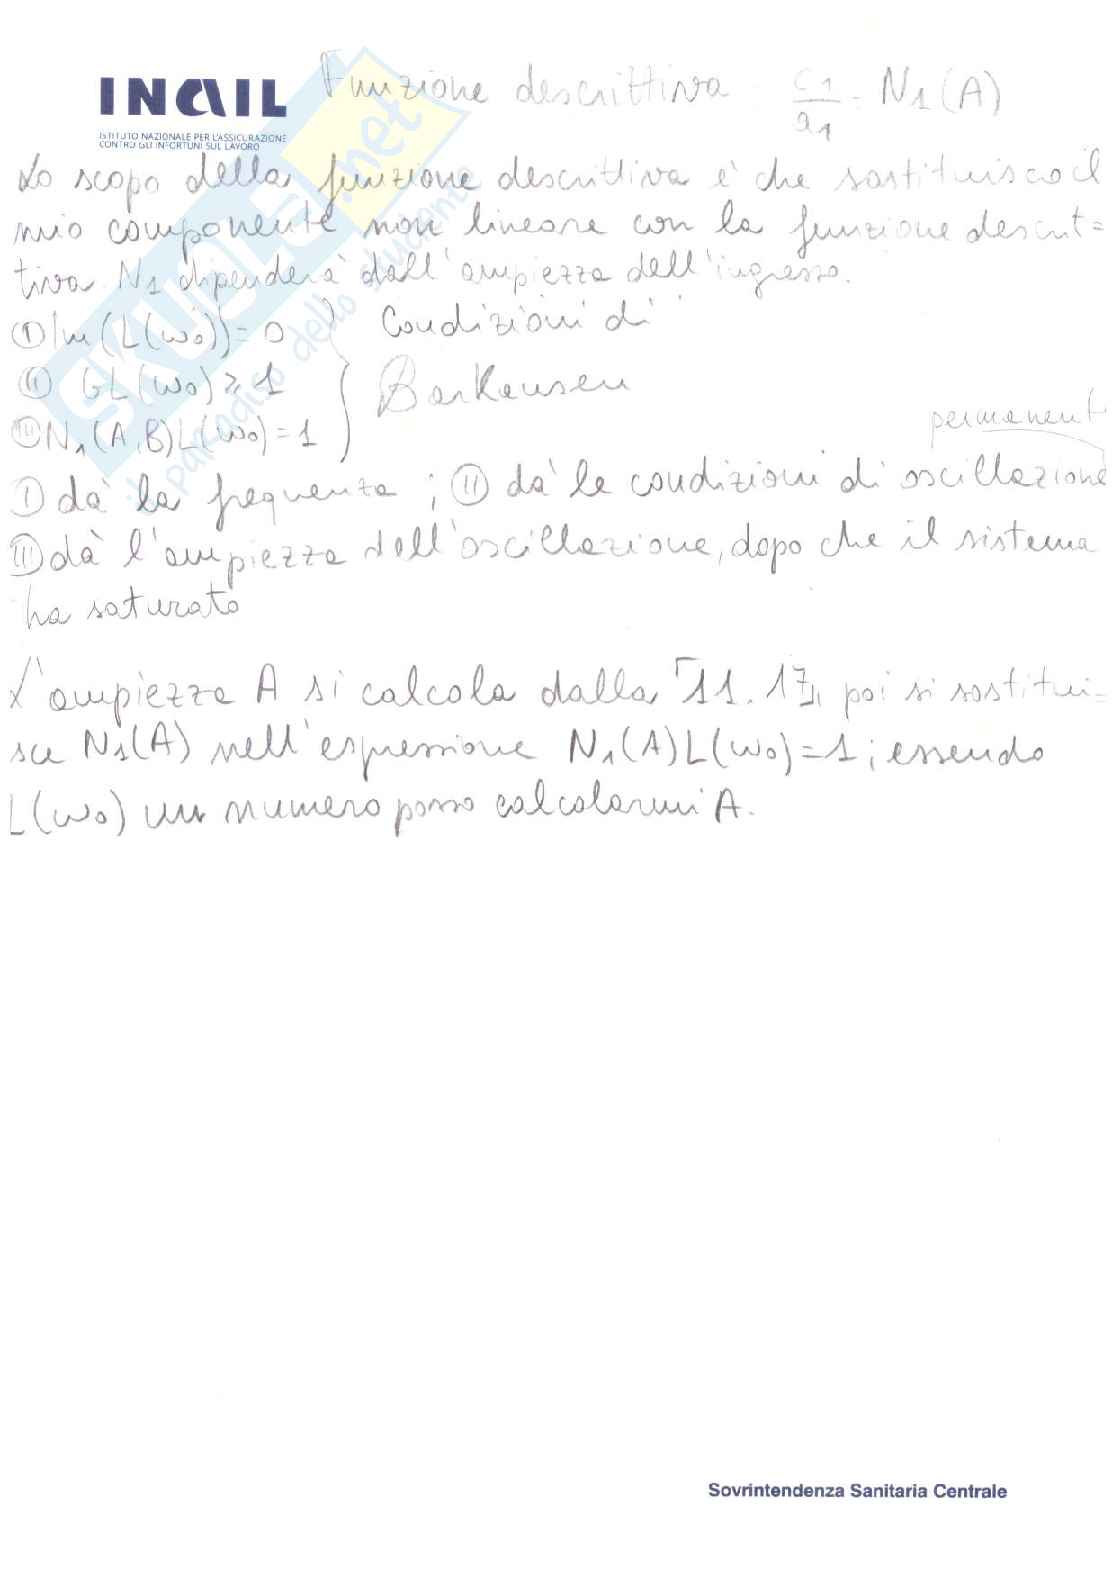 INAIL
ISTITUTO NAZIONALE PER L'ASSICURAZIONE
CONTRO GLI INFORTUNI SUL LAVORO
Funzione descrittiva c1/a1 = N1(A)
Lo scopo della funzione descrittiva è che sostituisco il
mio componente non lineare con la funzione descrit=
tiva. N1 dipenderà dall'ampiezza dell'ingresso.
Ⓘ Im(L(ω0))=0 } Condizioni di
Ⓘ Ⓘ GL(ω0)≥1 } Barkausen
ⒾⒾⒾ N1(A,B)L(ω0)=1
permanente
Ⓘ dà la frequenza; ⒾⒾ dà le condizioni di oscillazione
ⒾⒾⒾ dà l'ampiezza dell'oscillazione, dopo che il sistema
ha saturato
L'ampiezza A si calcola dalla 11.17, poi si sostitui-
sce N1(A) nell'espressione N1(A)L(ω0)=1; essendo
L(ω0) un numero posso calcolarmi A.
Sovrintendenza Sanitaria Centrale
SKUOLA.net
il paradiso dello studente